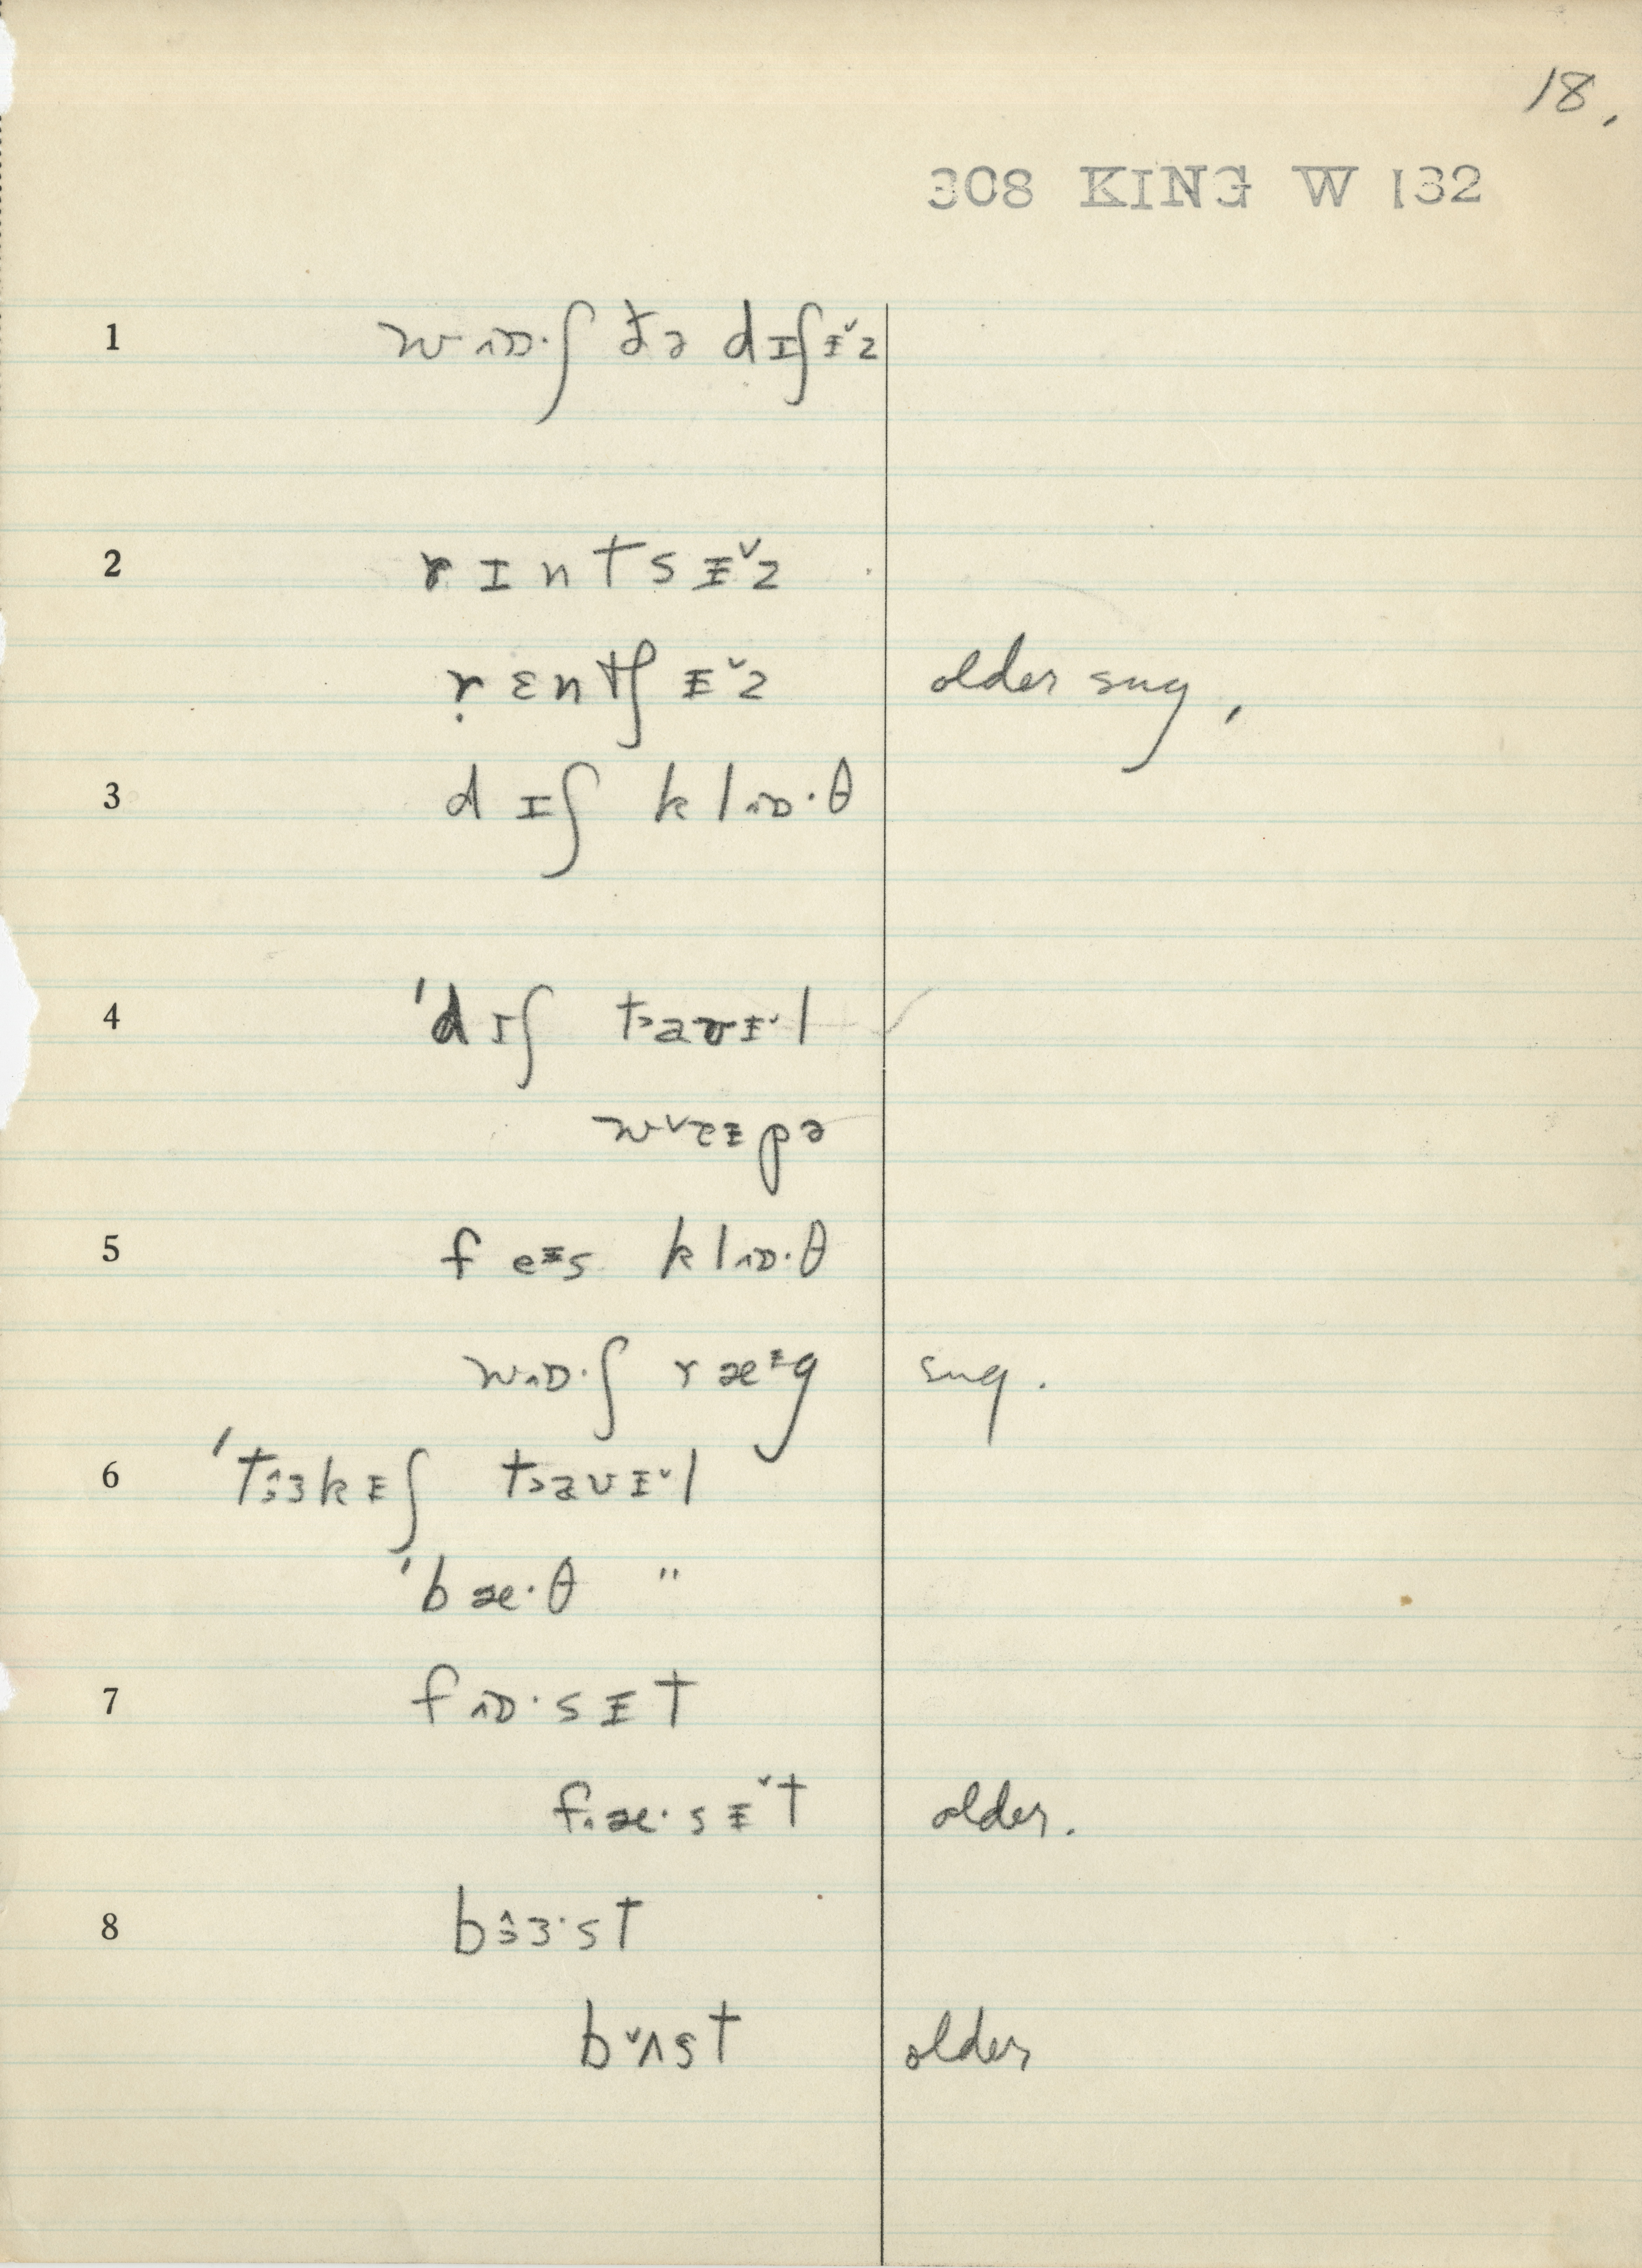 18.
308 KING W 132
1 wɒ·ʃ ðə dɪʃɨ̌z
2 rɪntsɨ̌z
ṛɛntʃɨ̌z older sug,
3 dɪʃ klɒ·θ
4 'dɪʃ taʊɨ̌l
wɨpə
5 feɨs klɒ·θ
wɒ·ʃ ræɨg sug.
6 'tɜkɨʃ taʊɨ̌l
'bæ·θ "
7 fɒ·sɨt
fæ·sɨ̌t older.
8 bɜ·st
bʌst older